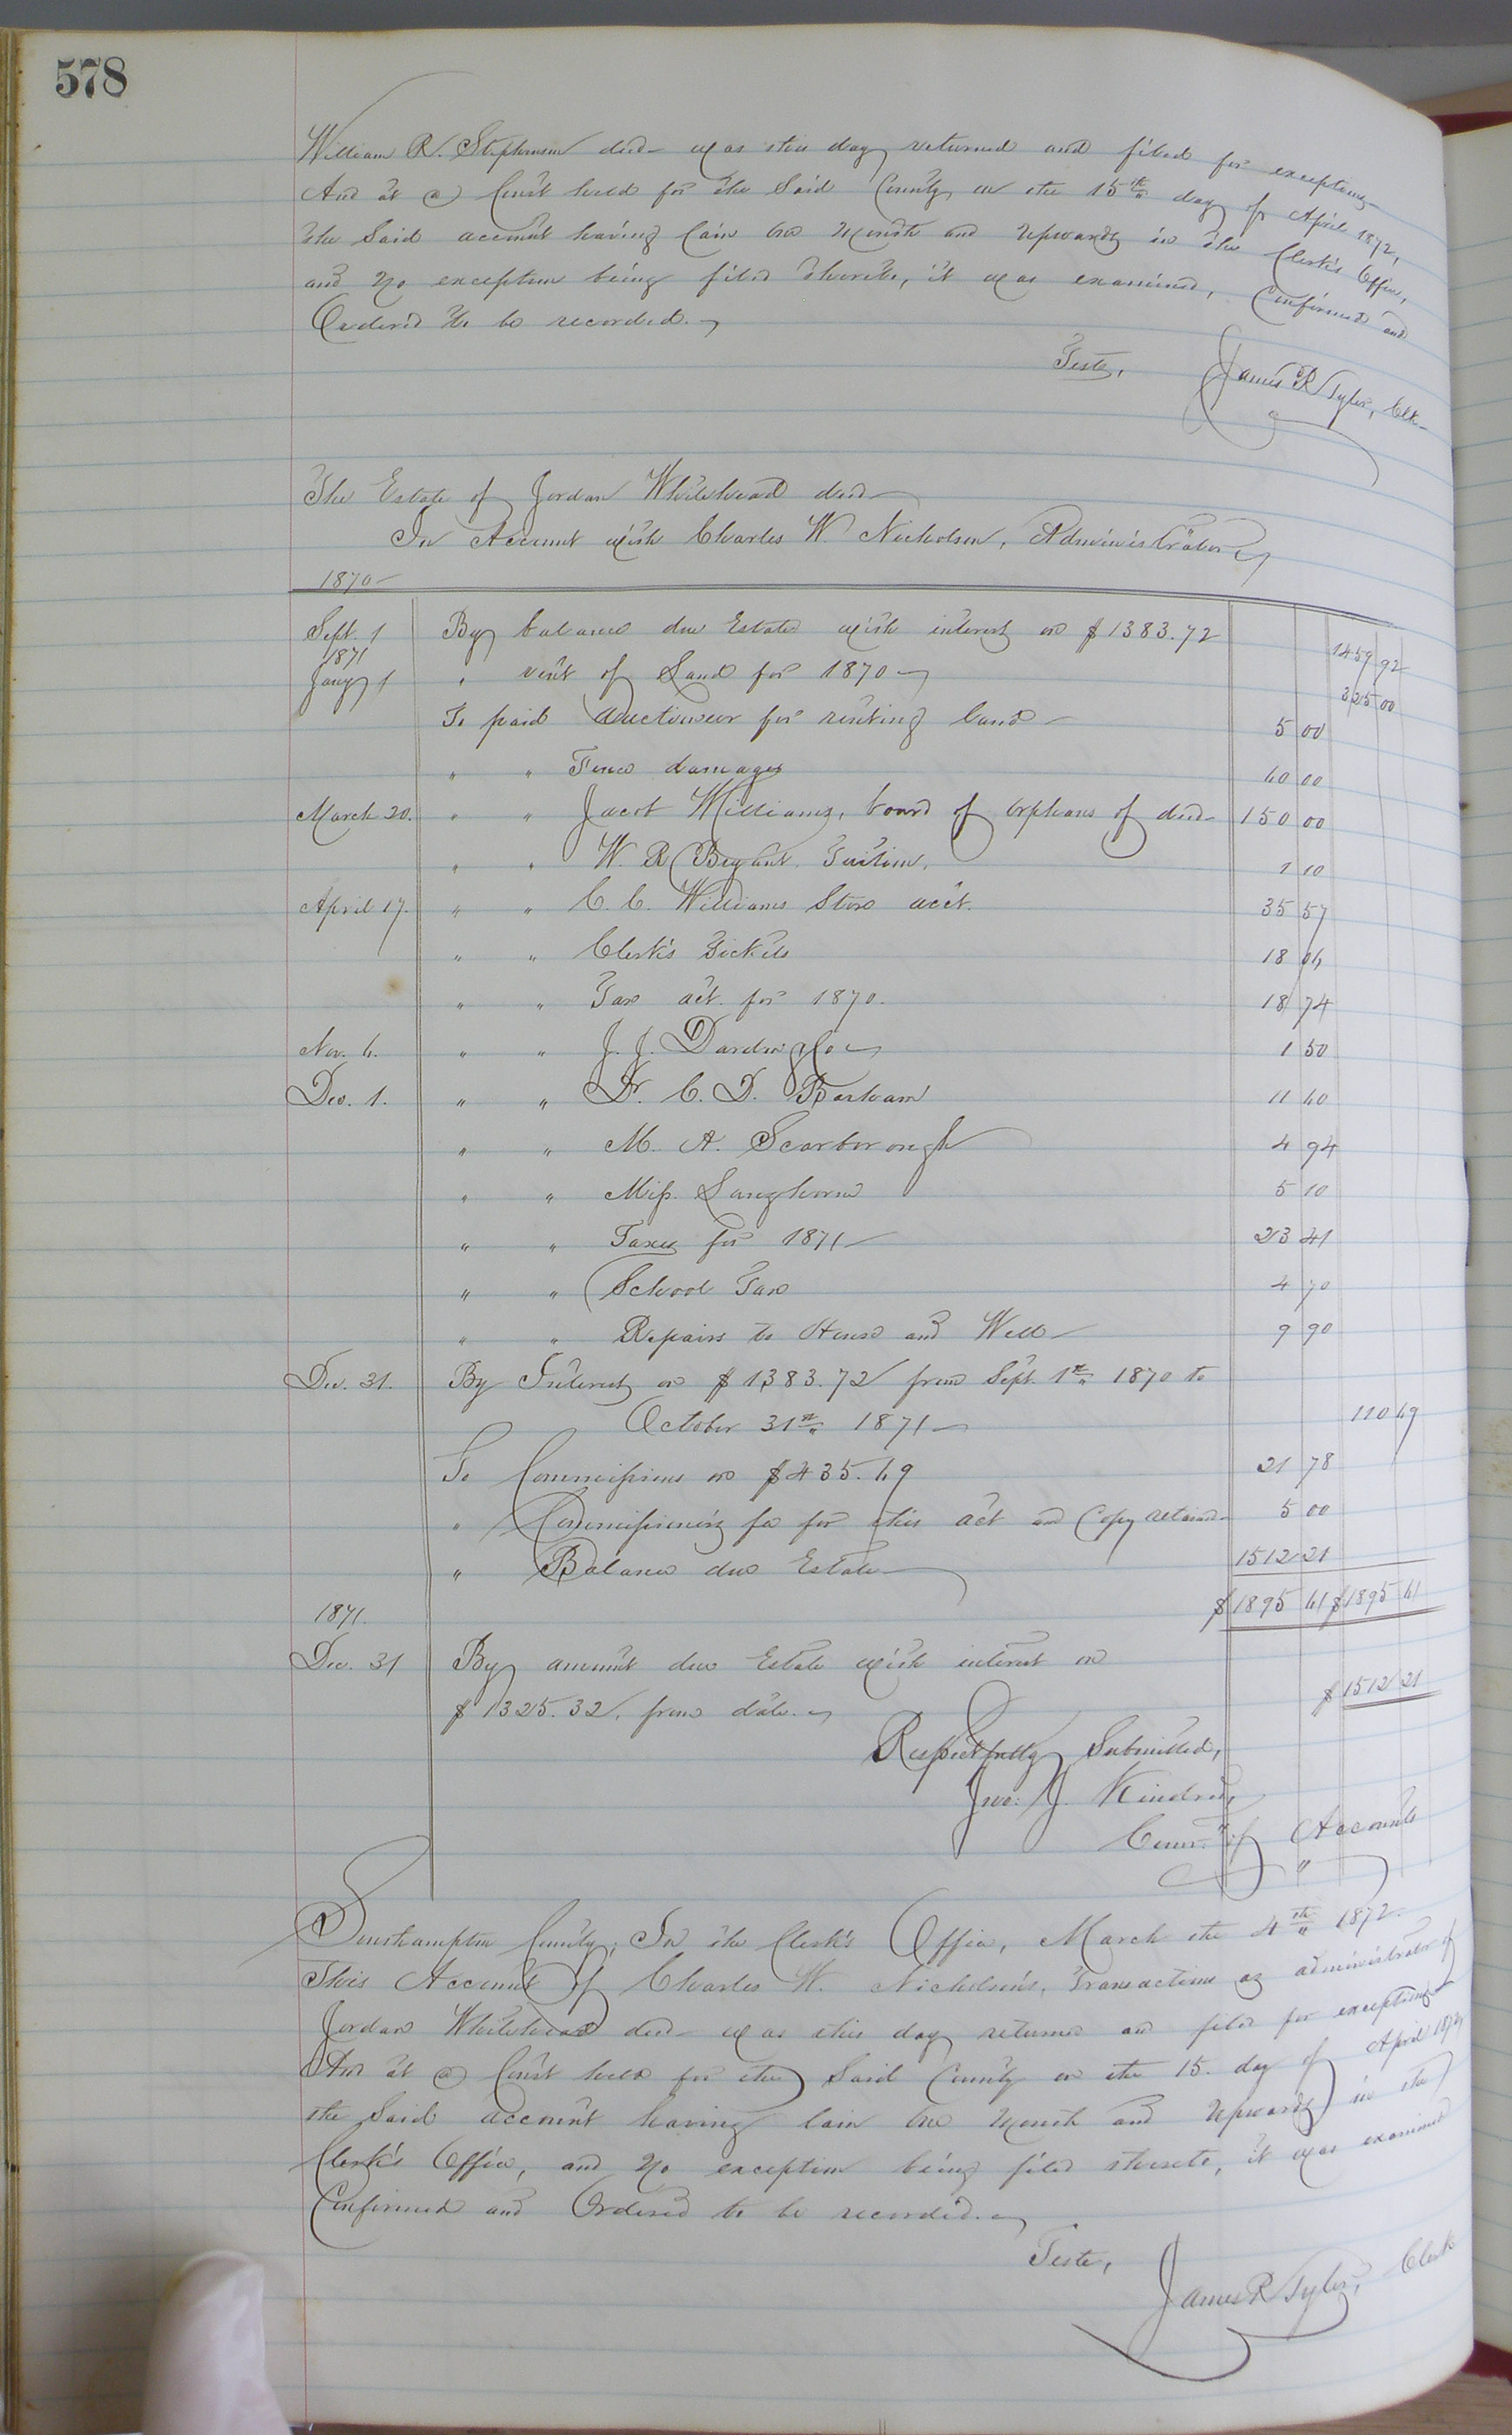 578
William R. Stephenson decd was this day returned and filed for exceptions
And at a Court held for the Said County on the 15th day of April 1872,
the Said account having lain one Month and Upwards in the Clerk's Office,
and No exception being filed thereto, it was examined, Confirmed and
Ordered to be recorded.
Teste, James R Tyler, Clk
The Estate of Jordan Whitehead decd
In Account with Charles W Nicholson, Administrator
1870
Sept. 1 By balance due Estate with interest on $1383.72 1459 92
1871
Jany 1 " rent of Land for 1870 325 00
To paid Auctioneer for renting land 5 00
" " Fence damages 60 00
March 20. " " Jacob Williams, board of Orphans of decd 150 00
" " W. R. Tuition, 1 10
April 17. " " C. C. Williams Store acct. 35 57
" " Clerk's Tickets 18 06
" " Tax act. for 1870. 18 74
Nov. 6. " " J. J. Darden & Co 1 50
Dec. 1. " " Dr. C. D. Barham 11 60
" " M. A. Scarborough 4 94
" " Miss Langhorne 5 10
" " Taxes for 1871 23 41
" " School Tax 4 70
" " Repairs to House and Well 9 90
Dec. 31. By Interest on $1383.72 from Sept. 1st 1870 to
October 31st 1871 110 69
To Commissions on $435.69 21 78
" Commissioner's fee for this act and Copy retained 5 00
" Balance due Estate 1512 21
$1895 61 $1895 61
1871.
Dec. 31 By amount due Estate with interest on
$1325.32, from date. $1512 21
Respectfully Submitted,
Jno. J. Kindred,
Comr. of Accounts
"
Southampton County, In the Clerk's Office, March the 4th 1872.
This Account of Charles W. Nicholson's, Transactions as administrator of
Jordan Whitehead decd was this day returned and filed for exceptions
And at a Court held for the Said County on the 15. day of April 1872,
the Said account having lain one Month and Upwards in the
Clerk's Office, and No exception being filed thereto, it was examined
Confirmed and Ordered to be recorded.
Teste,
James R Tyler, Clerk